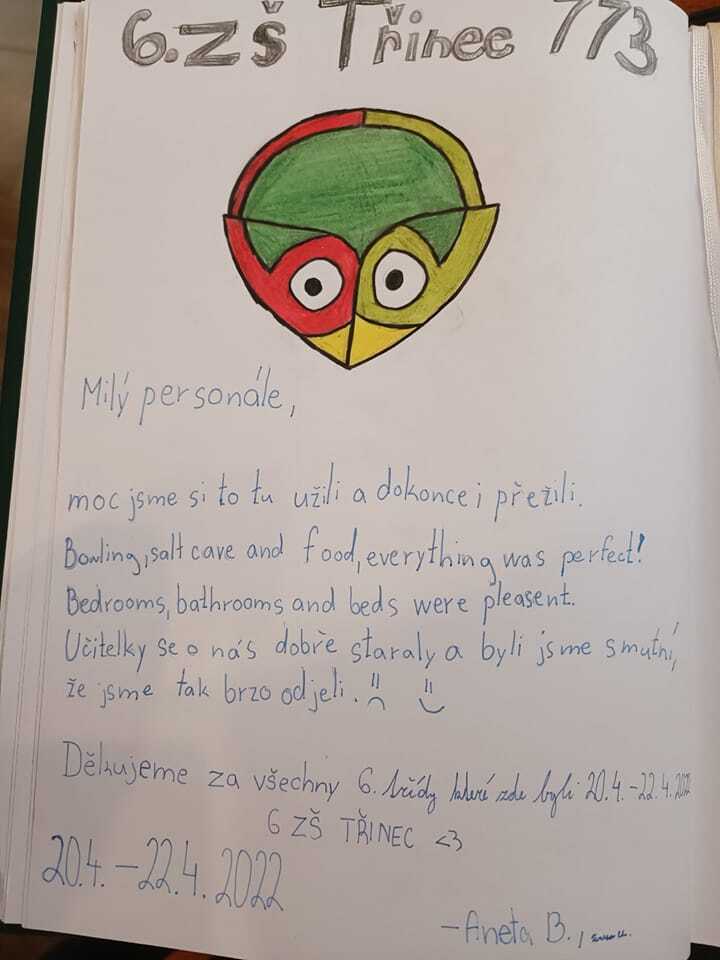 6. ZŠ Třinec 773
Milý personále,
moc jsme si to tu užili a dokonce i přežili.
Bowling, salt cave and food, everything was perfect!
Bedrooms, bathrooms and beds were pleasent.
Učitelky se o nás dobře staraly a byli jsme smutní,
že jsme tak brzo odjeli.
Děkujeme za všechny 6. třídy které zde byli 20.4.-22.4.2022
6 ZŠ TŘINEC <3
20.4.-22.4.2022
-Aneta B.,